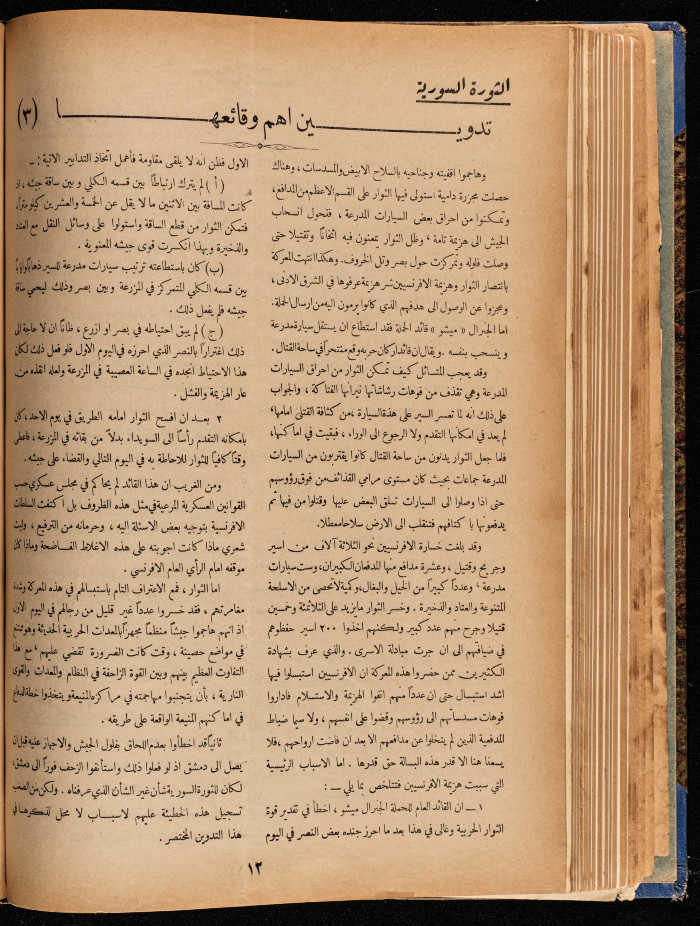 الثورة السورية
تدويـــــين اهم وقائعهـــــا (٣)
وهاجموا اقفيته وجناحيه بالسلاح الابيض والمسدسات ، وهناك
حصلت مجزرة دامية استولى فيها الثوار على القسم الاعظم من المدافع،
وتمكنوا من احراق بعض السيارات المدرعة ، فتحول انسحاب
الجيش الى هزيمة تامة ، وظل الثوار يمعنون فيه اثخاناً وتقتيلا حتى
وصلت فلوله وتمركزت حول بصر وتل الخروف. وهكذا انتهت المعركة
بانتصار الثوار وهزيمة الافرنسيين شر هزيمة عرفوها في الشرق الادنى ،
وعجزوا عن الوصول الى هدفهم الذي كانوا يرمون اليه من ارسال الحملة.
اما الجنرال « ميشو » قائد الحملة فقد استطاع ان يستقل سيارة مدرعة
و ينسحب بنفسه . ويقال ان قائد اركان حربه وقع منتحراً في ساحة القتال.
وقد يعجب المتسائل كيف تمكن الثوار من احراق السيارات
المدرعة وهي تقذف من فوهات رشاشاتها نيرانها الفتاكة ، والجواب
على ذلك انه لما تعسر السير على هذة السيارة ،من كثافة القتلى امامها،
لم يعد في امكانها التقدم ولا الرجوع الى الوراء ، فبقيت في اماكنها،
فلما جعل الثوار يدنون من ساحة القتال كانوا يقتربون من السيارات
المدرعة جماعات بحيث كان مستوى مرامي القذائف من فوق رؤوسهم
حتى اذا وصلوا الى السيارات تسلق البعض عليها وقتلوا من فيها ثم
يدفعونها با كتافهم فتنقلب الى الارض سلاحا معطلا.
وقد بلغت خسارة الافرنسيين نحو الثلاثة آلاف من اسير
وجريح وقتيل ، وعشرة مدافع منها المدفعان الكبيران، وست سيارات
مدرعة ، وعدداً كبيراً من الخيل والبغال،وكمية لاتحصى من الاسلحة
المتنوعة والعتاد والذخيرة . وخسر الثوار مايزيد على الثلاثمئة وخمسين
قتيلا وجرح منهم عدد كبير ولكنهم اخذوا ٢٠٠ اسير حفظوهم
في ضيافتهم الى ان جرت مبادلة الاسرى . والذي عرف بشهادة
الكثيرين ممن حضروا هذه المعركة ان الافرنسيين استبسلوا فيها
اشد استبسال حتى ان عدداً منهم اتقوا الهزيمة والاستسلام فاداروا
فوهات مسدساتهم الى رؤوسهم وقضوا على انفسهم ، ولا سيما ضباط
المدفعية الذين لم يتخلوا عن مدافعهم الا بعد ان فاضت ارواحهم ،فلا
يسعنا هنا الا قدر هذه البسالة حق قدرها . اما الاسباب الرئيسية
التي سببت هزيمة الافرنسيين فتتلخص بما يلي — :
١ — ان القائد العام للحملة الجنرال ميشو ، اخطأ في تقدير قوة
الثوار الحربية وغالى في هذا بعد ما احرز جنده بعض النصر في اليوم
الاول فظن انه لا يلقى مقاومة فأعمل اتخاذ التدابير الاتية : —
( أ ) لم يترك ارتباطاً بين قسمه الكلي و بين ساقة جيشه ، اذ
كانت المسافة بين الاثنين ما لا يقل عن الخمسة والعشرين كيلو متراً،
فتمكن الثوار من قطع الساقة واستولوا على وسائل النقل مع العتاد
والذخيرة و بهذا انكسرت قوى جيشه المعنوية .
( ب ) كان باستطاعته ترتيب سيارات مدرعة للسير ذهاباً واياباً
بين قسمه الكلي المتمركز في المزرعة و بين بصر وذلك ليحمي ساقة
جيشه فلم يفعل ذلك .
( ج ) لم يبق احتياطه في بصر او ازرع ، ظاناً ان لا حاجة الى
ذلك اغتراراً بالنصر الذي احرزه في اليوم الاول فلو فعل ذلك لكان
هذا الاحتياط انجده في الساعة العصيبة في المزرعة ولعله انقذه من
عار الهزيمة والفشل .
٢ بعد ان افسح الثوار امامه الطريق في يوم الاحد،كان
بامكانه التقدم رأساً الى السويداء، بدلاً من بقائه في المزرعة ، فاعطى
وقتاً كافياً للثوار للاحاطة به في اليوم التالي والقضاء على جيشه.
ومن الغريب ان هذا القائد لم يحاكم في مجلس عسكري حسب
القوانين العسكرية المرعية في مثل هذه الظروف بل اكتفت السلطات
الافرنسية بتوجيه بعض الاسئلة اليه ، وحرمانه من الترفيع ، وليت
شعري ماذا كانت اجوبته على هذه الاغلاط الفاضحة وماذا كان
موقفه امام الرأي العام الافرنسي .
اما الثوار ، فمع الاعتراف التام باستبسالهم في هذه المعركة وشدة
مغامرتهم ، فقد خسروا عدداً غير قليل من رجالهم في اليوم الاول
اذ انهم هاجموا جيشاً منظماً مجهزاً بالمعدات الحربية الحديثة وهو ممتنع
في مواضع حصينة ، وقت كانت الضرورة تقضي عليهم ، مع هذا
التفاوت العظيم بينهم وبين القوة الزاحفة في النظام والمعدات والقوى
النارية ، بأن يتجنبوا مهاجمته في مراكزه المنيعة ويتخذوا خطة الدفاع
في اما كنهم المنيعة الواقعة على طريقه .
ثانياً قد اخطأوا بعدم اللحاق بفلول الجيش والاجهاز عليه قبل ان
يصل الى دمشق اذ لو فعلوا ذلك واستأنفوا الزحف فوراً الى دمشق،
لكان للثورة السورية شأن غير الشأن الذي عرفناه . ولكن من الصعب
تسجيل هذه الخطيئة عليهم لاسباب لا محل لذكرها في
هذا التدوين المختصر .
١٣